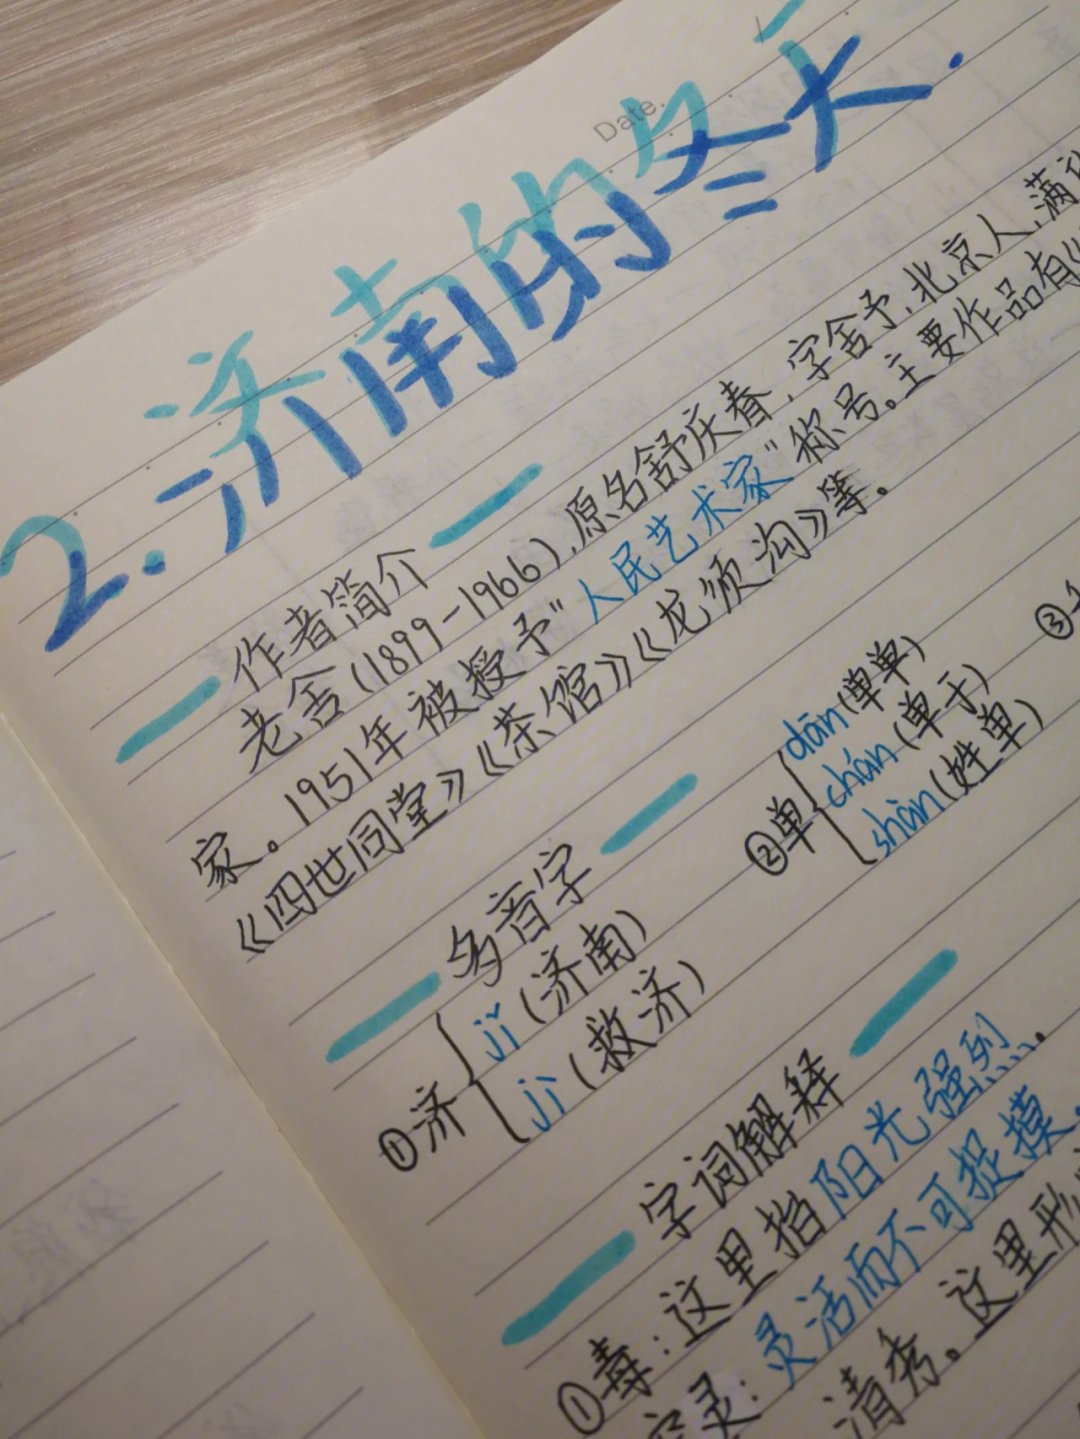 Date.
2.济南的冬天.
作者简介
老舍(1899-1966),原名舒庆春,字舍予,北京人,满
家。1951年被授予"人民艺术家"称号。主要作品有《
《四世同堂》《茶馆》《龙须沟》等。
多音字
①济 jǐ(济南)
jì(救济)
②单 dān(单单)
chán(单于)
shàn(姓单)
③
字词解释
①毒:这里指阳光强烈.
空灵:灵活而不可捉摸.
清秀。这里形